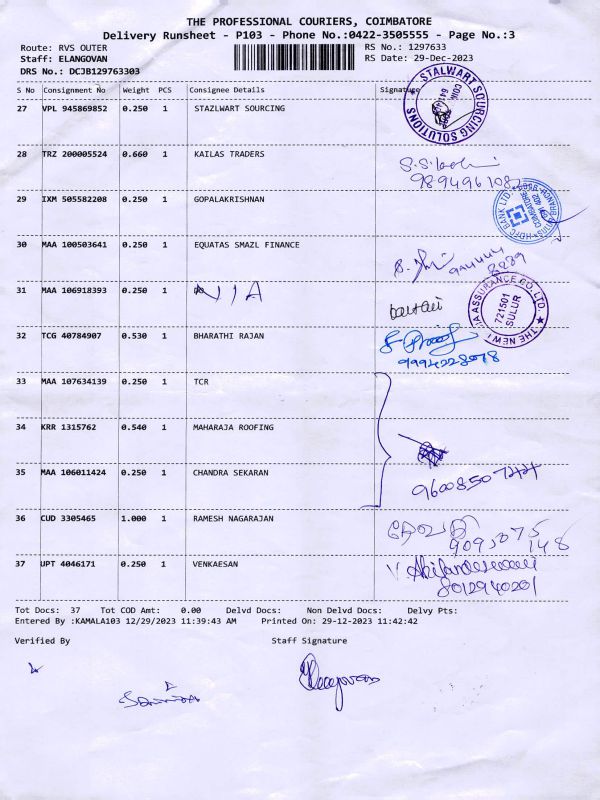 THE PROFESSIONAL COURIERS, COIMBATORE
Delivery Runsheet - P103 - Phone No.:0422-3505555 - Page No.:3
Route: RVS OUTER RS No.: 1297633
Staff: ELANGOVAN RS Date: 29-Dec-2023
DRS No.: DCJB129763303
S No Consignment No Weight PCS Consignee Details Signature
27 VPL 945869852 0.250 1 STAZLWART SOURCING
STALWART SOURCING SOLUTIONS
28 TRZ 200005524 0.660 1 KAILAS TRADERS
9894961082
29 IXM 505582208 0.250 1 GOPALAKRISHNAN
HDFC BANK LTD.
30 MAA 100503641 0.250 1 EQUATAS SMAZL FINANCE
31 MAA 106918393 0.250 1 NIA
THE NEW INDIA ASSURANCE CO. LTD.
721501
SULUR
32 TCG 40784907 0.530 1 BHARATHI RAJAN
9994228078
33 MAA 107634139 0.250 1 TCR
34 KRR 1315762 0.540 1 MAHARAJA ROOFING
35 MAA 106011424 0.250 1 CHANDRA SEKARAN
9600850744
36 CUD 3305465 1.000 1 RAMESH NAGARAJAN
37 UPT 4046171 0.250 1 VENKAESAN
8012940201
Tot Docs: 37 Tot COD Amt: 0.00 Delvd Docs: Non Delvd Docs: Delvy Pts:
Entered By :KAMALA103 12/29/2023 11:39:43 AM Printed On: 29-12-2023 11:42:42
Verified By Staff Signature